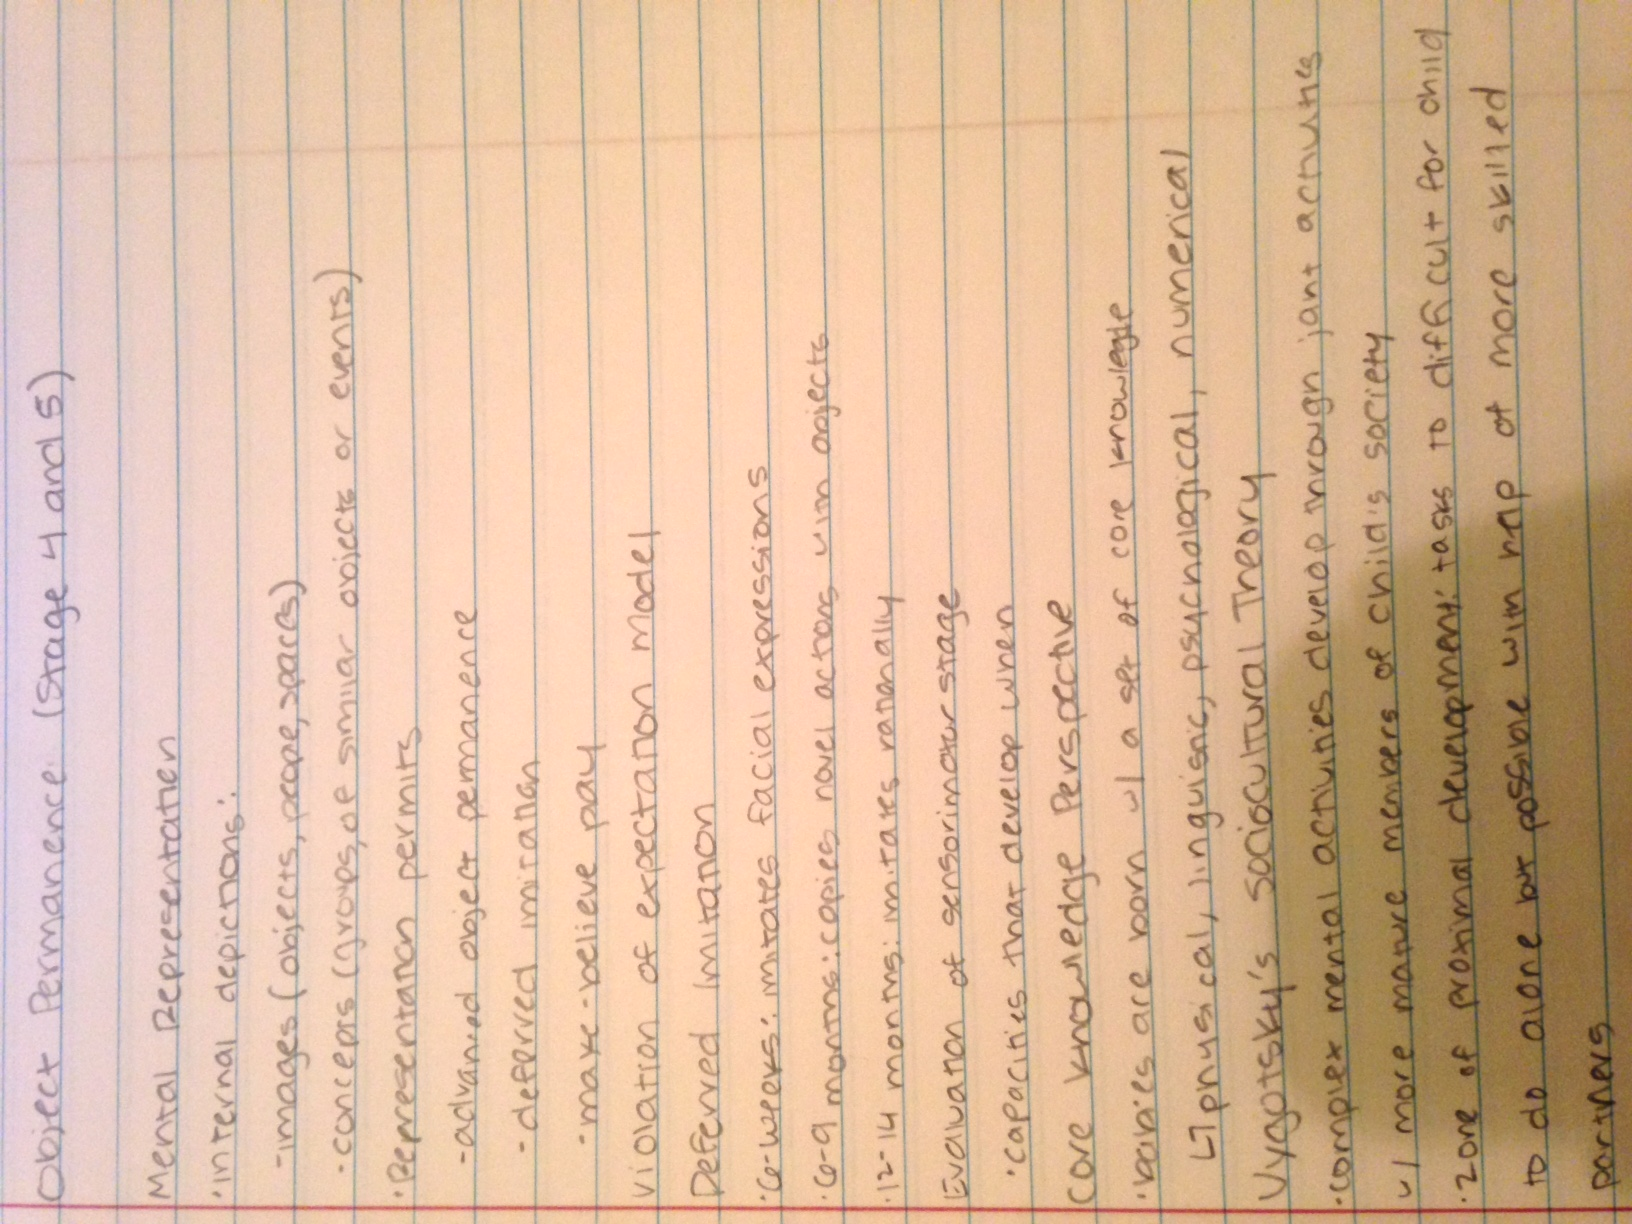 Object Permanence (Stage 4 and 5)
Mental Representation
·internal depictions:
-images (objects, people, spaces)
-concepts (groups, of similar objects or events)
·Representation permits
-advanced object permanence
-deferred imitation
-make-believe play
Violation of expectation model
Deferred Imitation
·6-weeks: imitates facial expressions
·6-9 months: copies novel actions with objects
·12-14 months: imitates rationally
Evaluation of sensorimotor stage
·capacities that develop when
Core Knowledge Perspective
·babies are born w/ a set of core knowledge
↳ physical, linguistic, psychological, numerical
Vygotsky's Sociocultural Theory
·complex mental activities develop through joint activities
w/ more mature members of child's society
·zone of proximal development: tasks to difficult for child
to do alone but possible with help of more skilled
partners